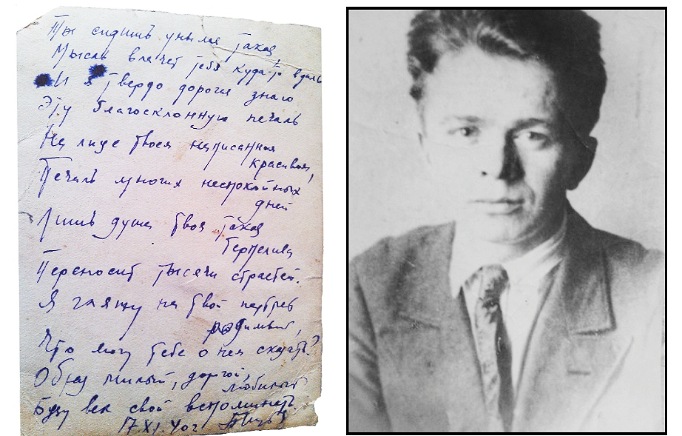 Ты сидишь унылая такая
Мысль влечет тебя куда-то вдаль
И я твердо дорогая знаю
Эту благосклонную печаль
На лице твоем написанная
красивая,
Печаль многих неспокойных
дней
Лишь душа твоя такая
терпелива
Переносит тысячи страстей.
Я гляжу на твой портрет
родимый,
Что могу тебе о нем сказать?
Образ милый, дорогой,
любимый
Буду век свой вспоминать.
17.XI.40г.